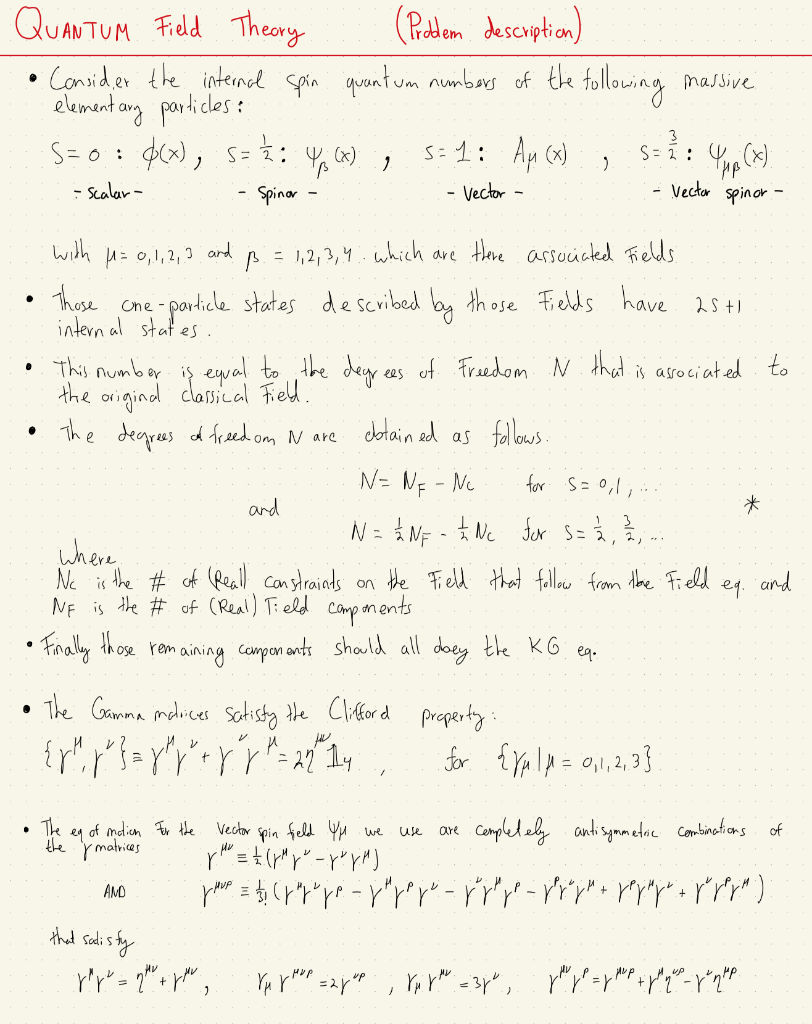 QUANTUM Field Theory (Problem description)
• Consider the internal spin quantum numbers of the following massive
elementary particles:
S=0 : ϕ(x) , S=½ : Ψ_β(x) , S=1 : A_μ(x) , S=3/2 : Ψ_μβ(x)
- Scalar - - Spinor - - Vector - - Vector spinor -
With μ=0,1,2,3 and β = 1,2,3,4. which are there associated Fields
• Those one-particle states described by those Fields have 2S+1
internal states.
• This number is equal to the degrees of Freedom N that is associated to
the original classical Field.
• The degrees of freedom N are obtained as follows.
N= N_F - N_C for S=0,1,...
and *
N = ½N_F - ½N_C for S=½, 3/2, ...
Where
N_C is the # of (Real) constraints on the Field that follow from the Field eq. and
N_F is the # of (Real) Field components
• Finally those remaining components should all obey the KG eq.
• The Gamma matrices satisfy the Clifford property:
{γ^μ, γ^ν} ≡ γ^μγ^ν + γ^νγ^μ = 2η^μν 𝟙_4 , for {γ_μ|μ=0,1,2,3}
• The eq of motion for the Vector spin field Ψ_μ we use are completely antisymmetric combinations of
the γ matrices
γ^μν ≡ ½(γ^μγ^ν - γ^νγ^μ)
AND γ^μνρ ≡ 1/3! (γ^μγ^νγ^ρ - γ^μγ^ργ^ν - γ^νγ^μγ^ρ - γ^ργ^νγ^μ + γ^ργ^μγ^ν + γ^νγ^ργ^μ)
that satisfy
γ^μγ^ν = η^μν + γ^μν , γ_μγ^μνρ = 2γ^νρ , γ_μγ^μν = 3γ^ν , γ^μνγ^ρ = γ^μνρ + γ^μη^νρ - γ^νη^μρ